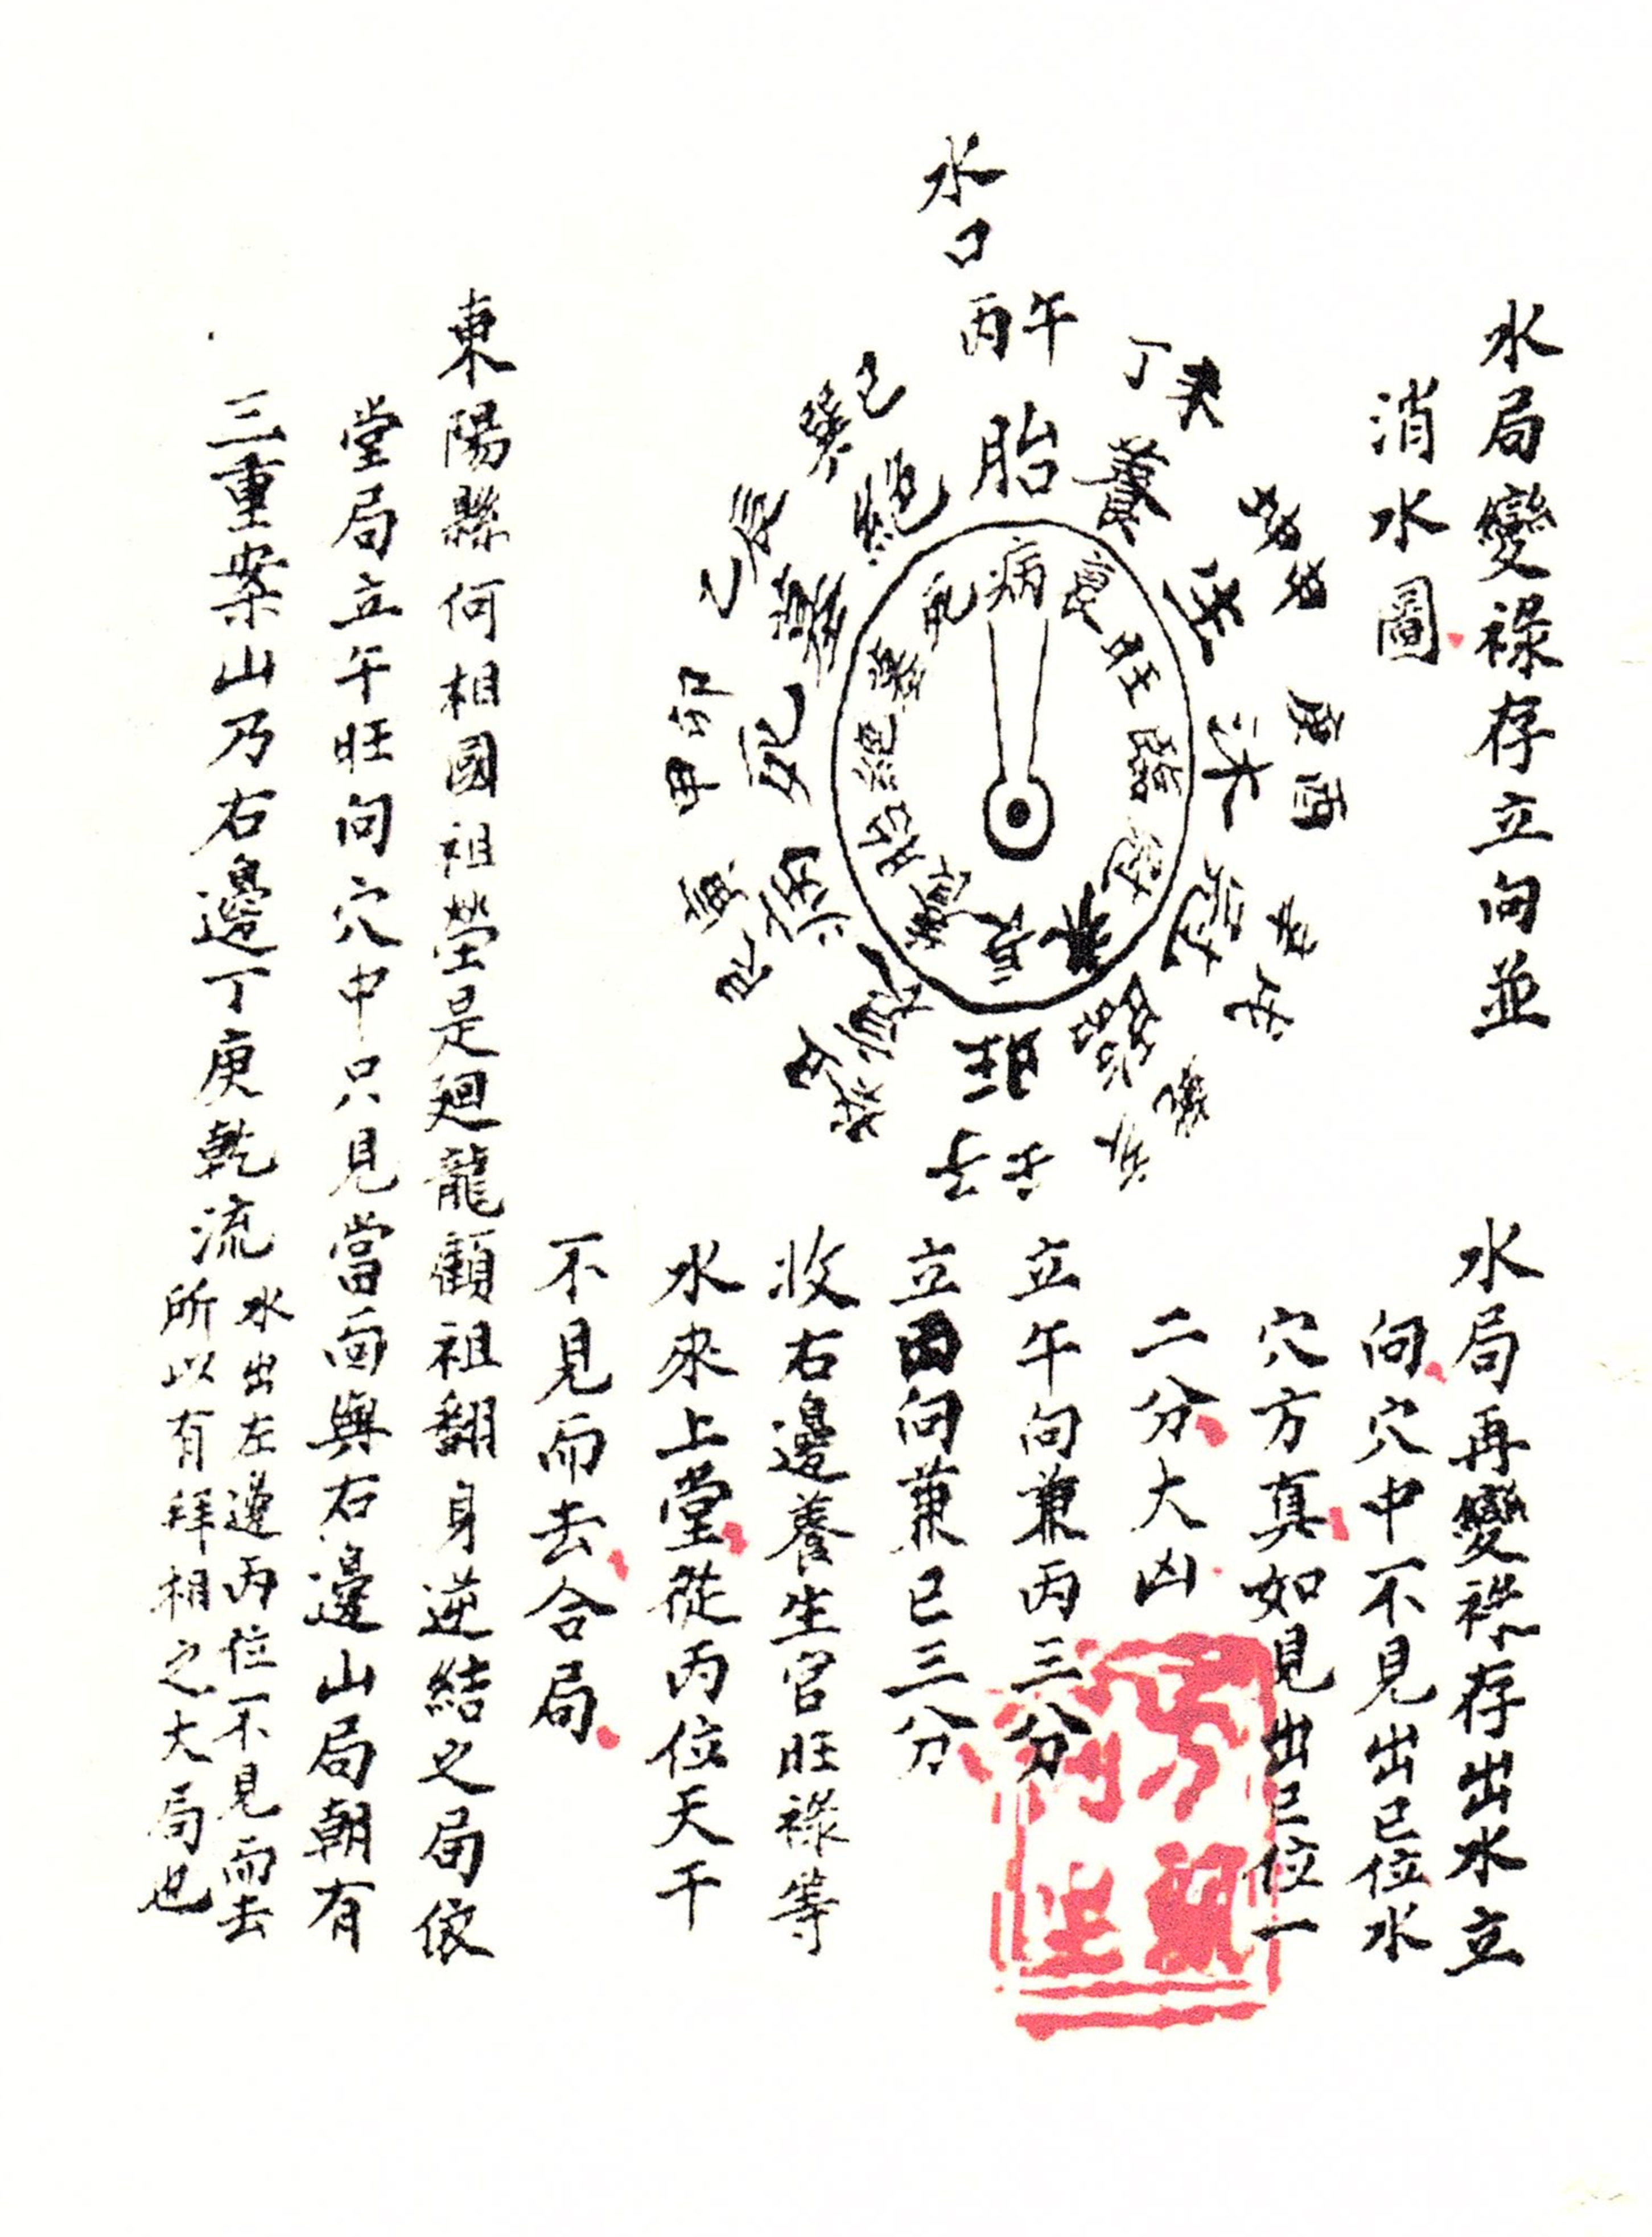 水局變祿存立向並
消水圖
水口
丙午
丁未
坤申
庚酉
辛戌
乾亥
壬子
癸丑
艮寅
甲卯
乙辰
巽巳
胎
養
生
沐
冠
臨
旺
衰
病
死
墓
絕
病
衰
旺
臨
冠
沐
長
養
胎
絕
墓
死
水局再變祿存出水立
向穴中不見出巳位水
穴方真如見出巳位一
二分大凶
立午向兼丙三分
立丙向兼巳三分
收右邊養生官旺祿等
水來上堂從丙位天干
不見而去合局
東陽縣何相國祖塋是廻龍顧祖翻身逆結之局依
堂局立午旺向穴中只見當面與右邊山局朝有
三重案山乃右邊丁庚乾流
水出左邊丙位不見而去
所以有拜相之大局也